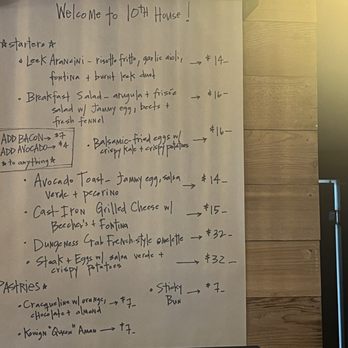 Welcome to 10TH House!
★starters★
• Leek Arancini - risotto fritto, garlic aioli, → $14-
fontina + burnt leek dust
• Breakfast Salad - arugula + frisée → $16-
salad w/ Jammy egg, beets +
fresh fennel
ADD BACON → $7
ADD AVOCADO → $4
★to anything★
• Balsamic-fried eggs w/ → $16-
crispy kale + crispy potatoes
• Avocado Toast - Jammy egg, salsa → $14-
verde + pecorino
• Cast-Iron Grilled Cheese w/ → $15-
Beecher's + Fontina
• Dungeness Crab French-style omelette → $32-
• Steak + Eggs w/ salsa verde + → $32-
crispy potatoes
PASTRIES★
• Cracqueline w/ orange, → $7-
chocolate + almond
• Sticky → $7-
Bun
• Kouign "Queen" Aman → $7-